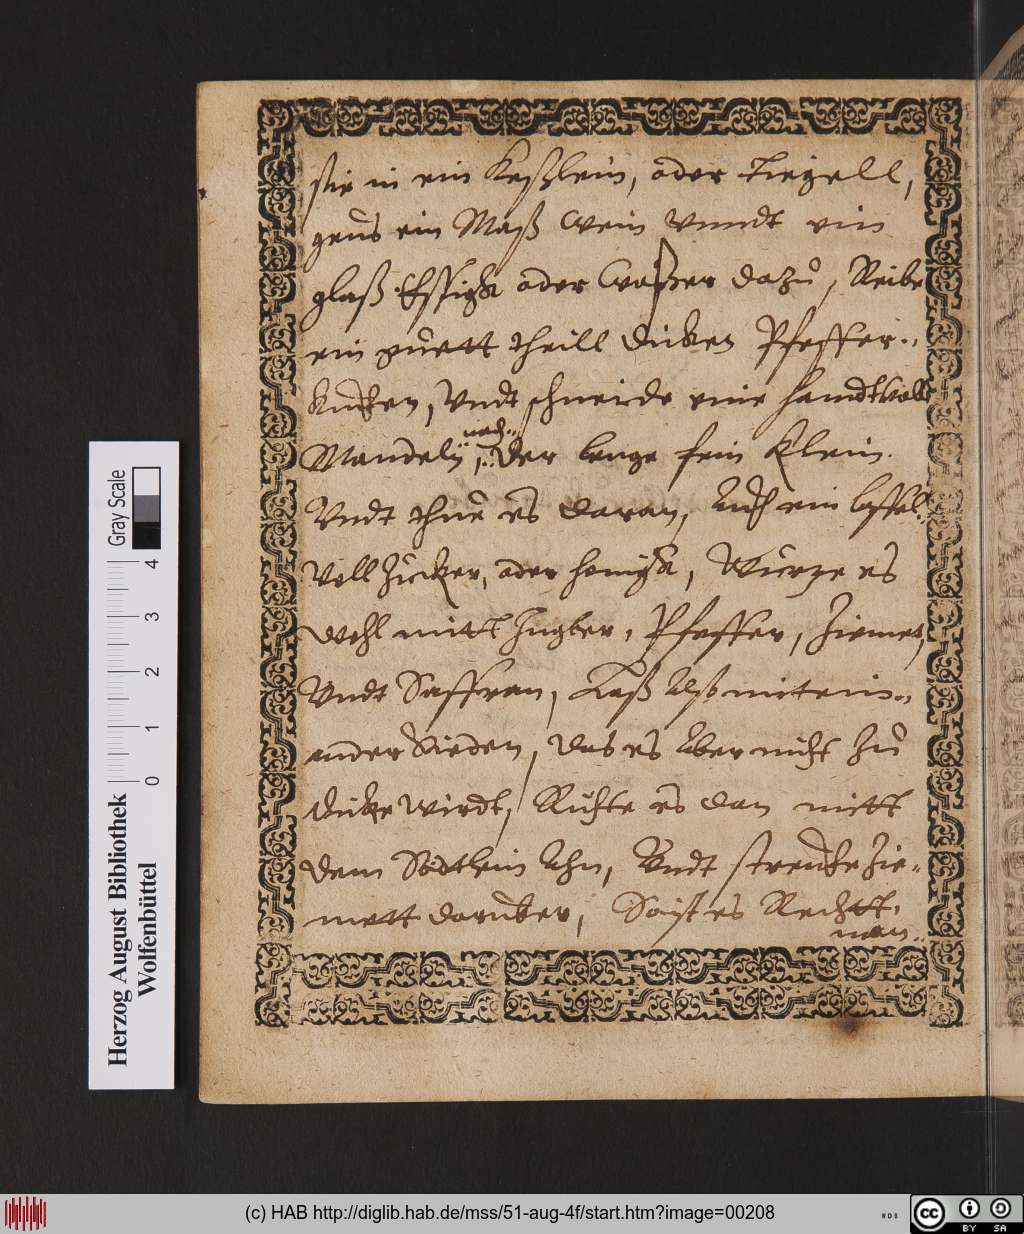 sie in ein Keßlein, oder Tiegell,
geus ein Maß Wein Vnndt ein
glaß Essigk oder Waßer dazu, Reibe
ein guett theill dicken Pfeffer..
kuchen, Vndt schneide eine handtvoll
nach..
Mandeln, der lenge fein klein.
Vndt thue es daran, Auch ein leffel..
Voll Zucker, oder honigk, Wurze es
Wohl mitt Ingber, Pfeffer, Ziemet,
Vndt Saffran, Laß Alß mitein..
ander Sieden, Das es Aber nicht Zu
dicke wirdt, Richte es dan mitt
dem Södtlein Ahn, Vndt streuhe Zie..
mett daruber, So ist es Rechtt.
man..
Gray Scale
4
3
2
1
0
Herzog August Bibliothek
Wolfenbüttel
(c) HAB http://diglib.hab.de/mss/51-aug-4f/start.htm?image=00208
WDB
cc
BY
SA